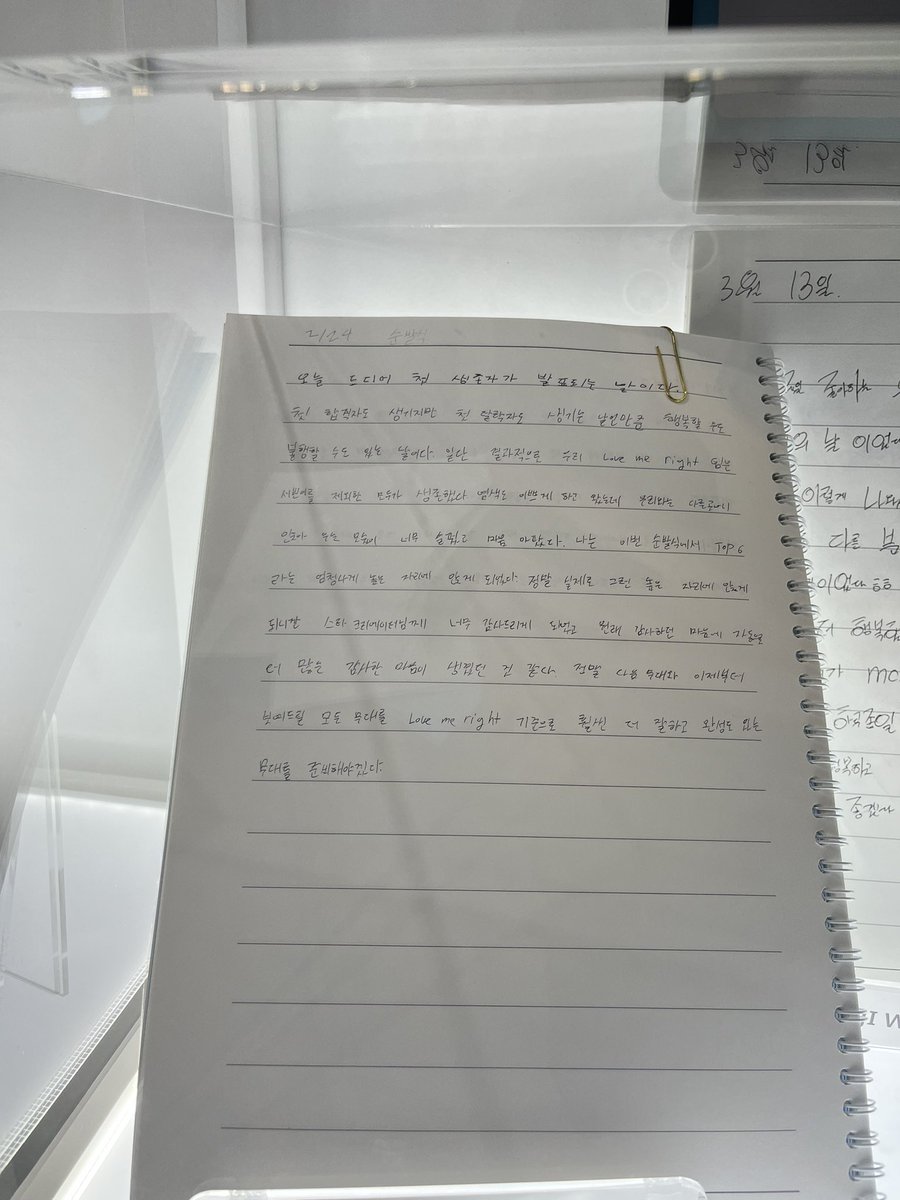 2/24 순발식
오늘 드디어 첫 생존자가 발표되는 날이다.
첫 합격자도 생기지만 첫 탈락자도 생기는 날인만큼 행복할 수도
불행할 수도 있는 날이다. 일단 결과적으로 우리 Love me right 팀은
제외한 모두가 생존했다 염색도 이쁘게 하고 왔는데
앉아 우는 모습이 너무 슬펐고 마음 아팠다. 나는 이번 순발식에서 TOP 6
라는 엄청나게 높은 자리에 앉게 되었다. 정말 실제로 그런 높은 자리에 앉게
되니깐 스타 크리에이터님께 너무 감사드리게 되었고 원래 감사하던 마음에
더 많은 감사한 마음이 생겼던 것 같다. 정말 다음 무대와 이제부터
보여드릴 모든 무대를 Love me right 기준으로 훨씬 더 잘하고 완성도 있는
무대를 준비해야겠다.
3월 13일.
좋아하는
의 날 이었다
이렇게
다른
이었다
행복
행복하고
좋겠다